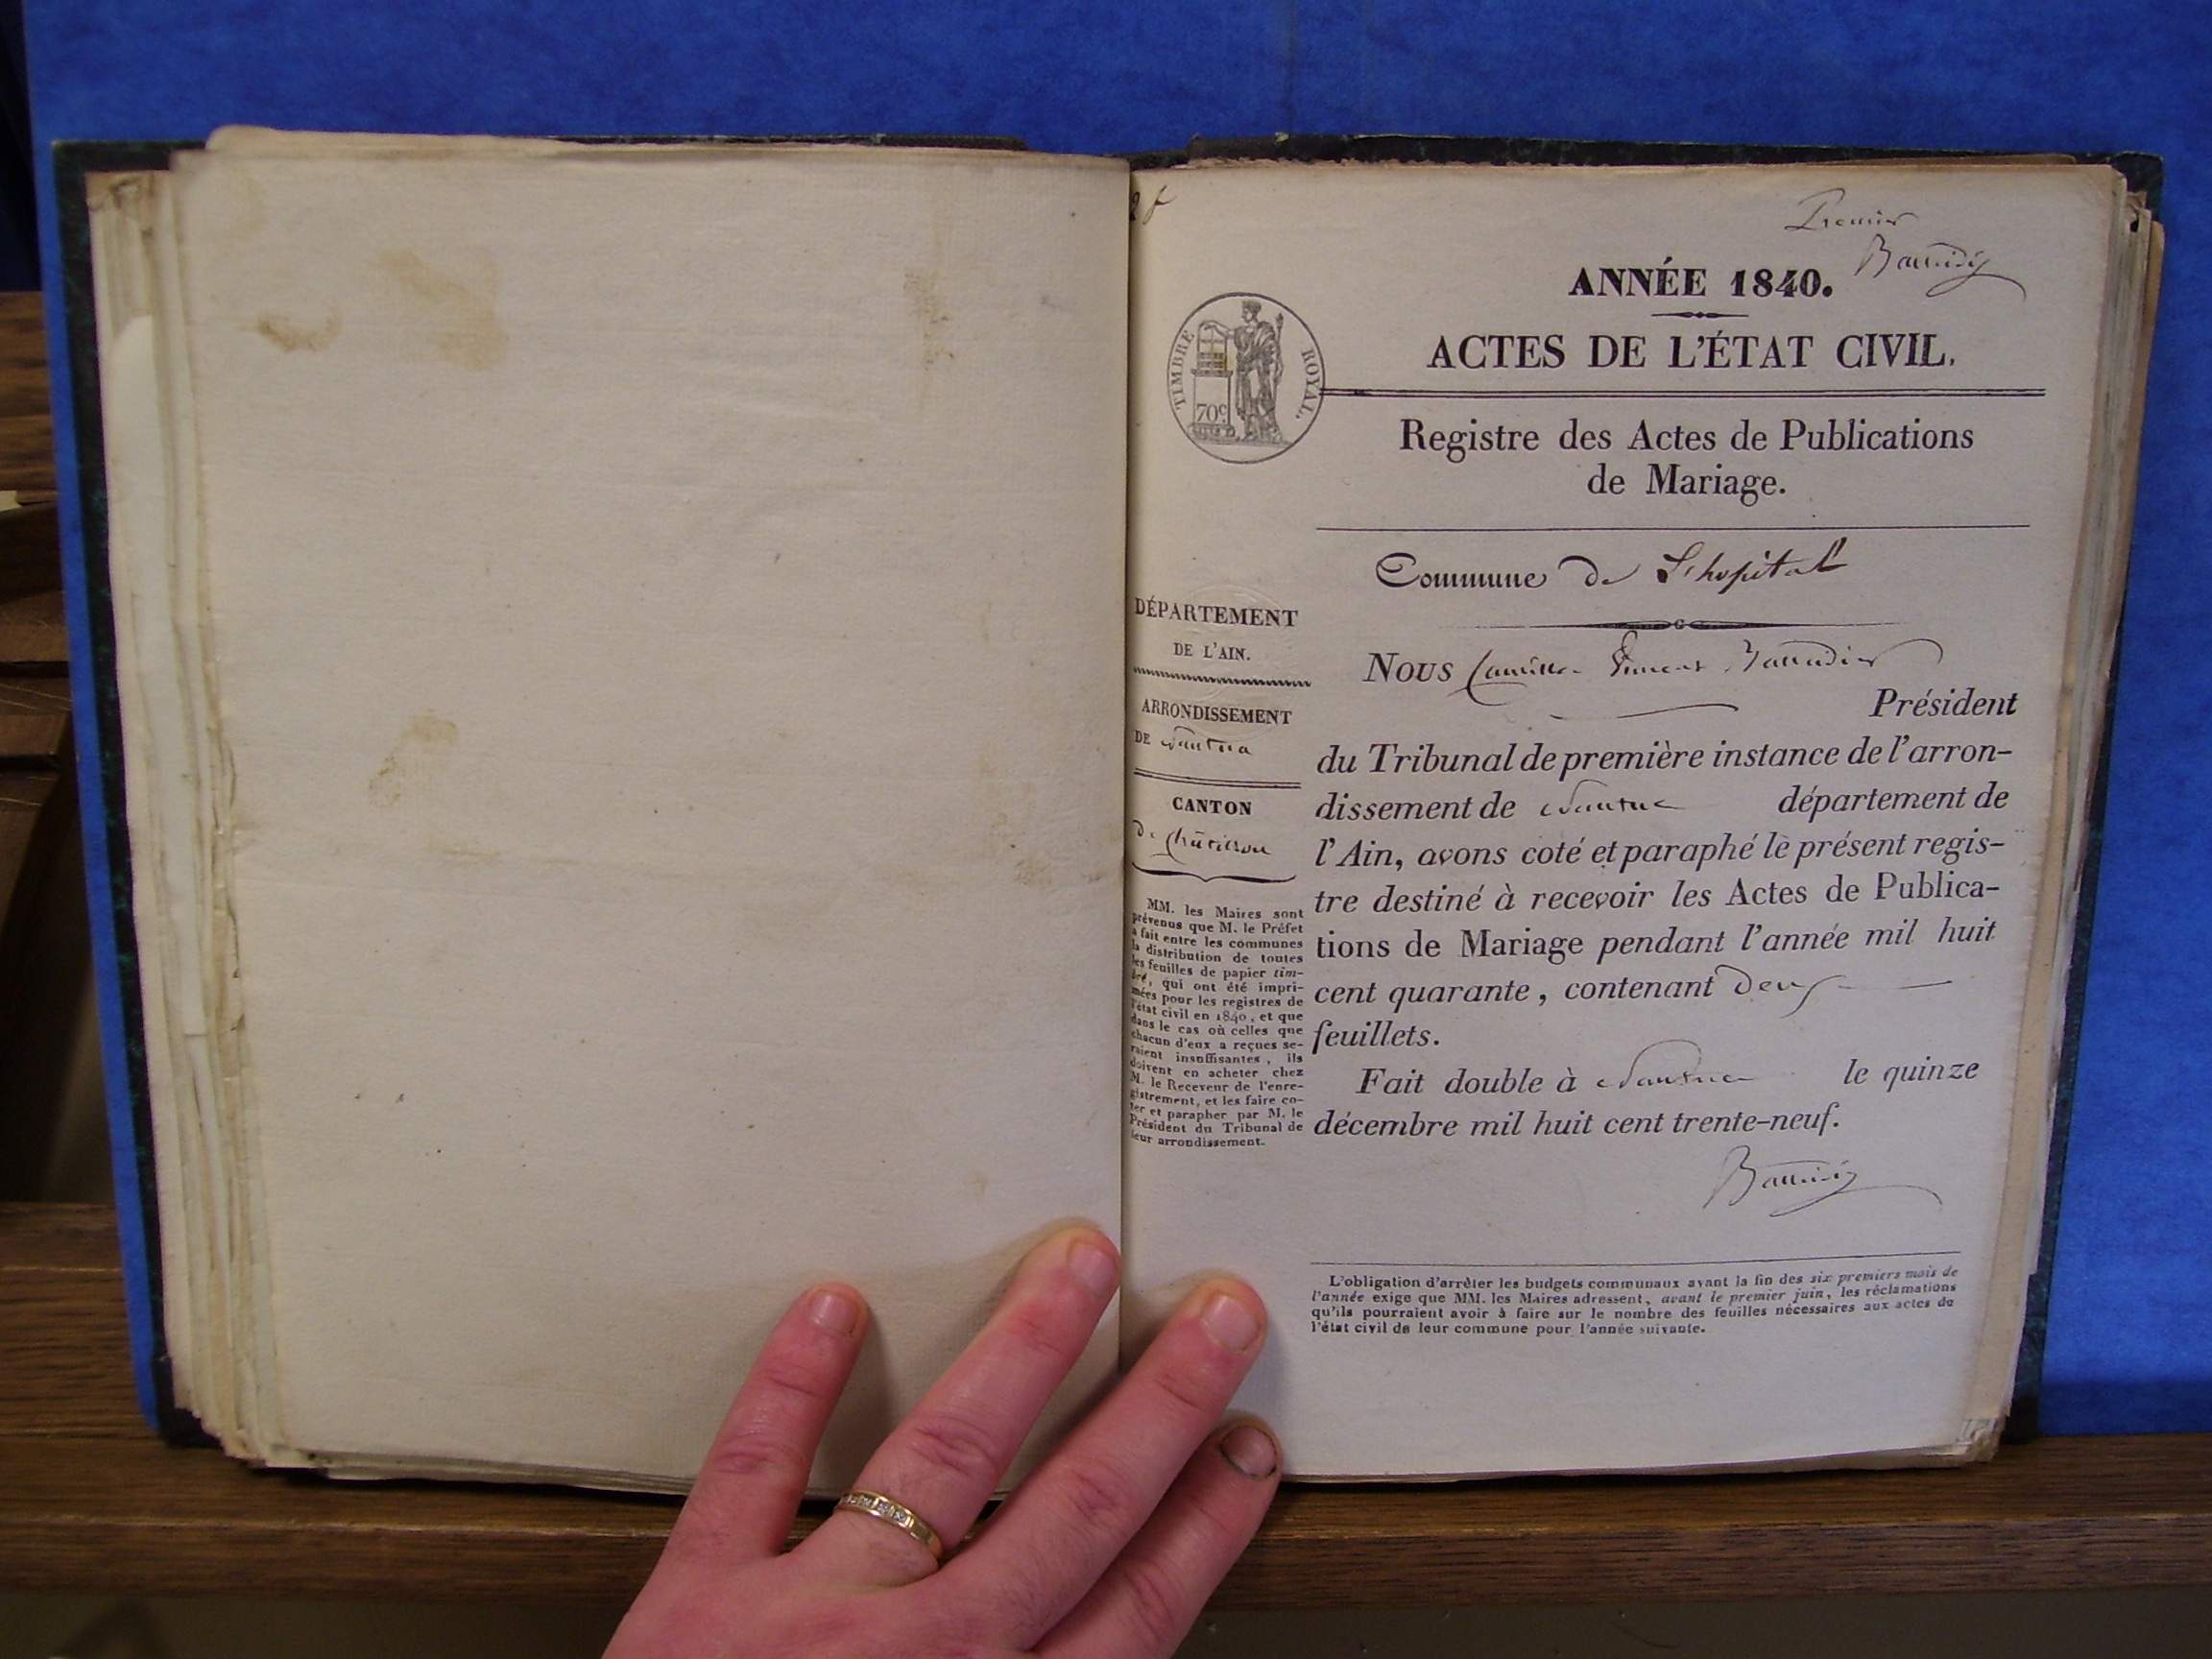 2 f
Premier
ANNÉE 1840.
ACTES DE L'ÉTAT CIVIL.
TIMBRE ROYAL.
70c
Registre des Actes de Publications
de Mariage.
Commune de L'hopital
DÉPARTEMENT
DE L'AIN.
ARRONDISSEMENT
DE Nantua
CANTON
de Châtillon
MM. les Maires sont
prévenus que M. le Préfet
a fait entre les communes
la distribution de toutes
les feuilles de papier tim-
bré, qui ont été impri-
mées pour les registres de
l'état civil en 1840, et que
dans le cas où celles que
chacun d'eux a reçues se-
raient insuffisantes, ils
doivent en acheter chez
M. le Receveur de l'enre-
gistrement, et les faire co-
ter et parapher par M. le
Président du Tribunal de
leur arrondissement.
Nous Camille
Président
du Tribunal de première instance de l'arron-
dissement de Nantua département de
l'Ain, avons coté et paraphé le présent regis-
tre destiné à recevoir les Actes de Publica-
tions de Mariage pendant l'année mil huit
cent quarante, contenant deux
feuillets.
Fait double à Nantua le quinze
décembre mil huit cent trente-neuf.
L'obligation d'arrêter les budgets communaux avant la fin des six premiers mois de
l'année exige que MM. les Maires adressent, avant le premier juin, les réclamations
qu'ils pourraient avoir à faire sur le nombre des feuilles nécessaires aux actes de
l'état civil de leur commune pour l'année suivante.